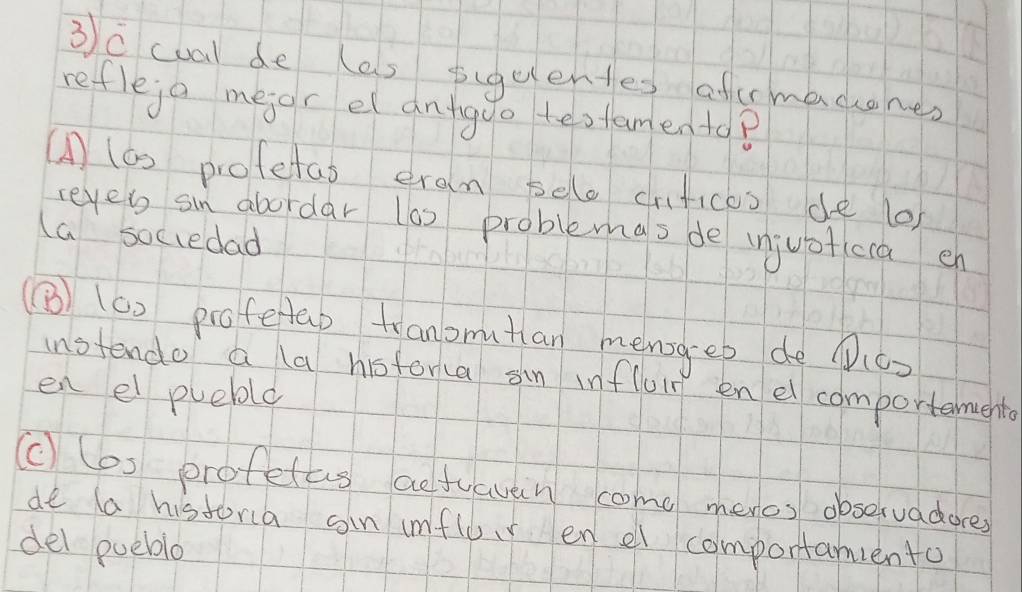 3) ¿ cual de las siguientes afirmaciones
refleja mejor el antiguo testamento?
(A) los profetas eran solo criticos de los
reyes sin abordar los problemas de injusticia en
la sociedad
(B) los profetas transmitian mensajes de Dios
instando a la historia sin influir en el comportamiento
en el pueblo
(C) los profetas actuaban como meros observadores
de la historia sin imfluir en el comportamiento
del pueblo